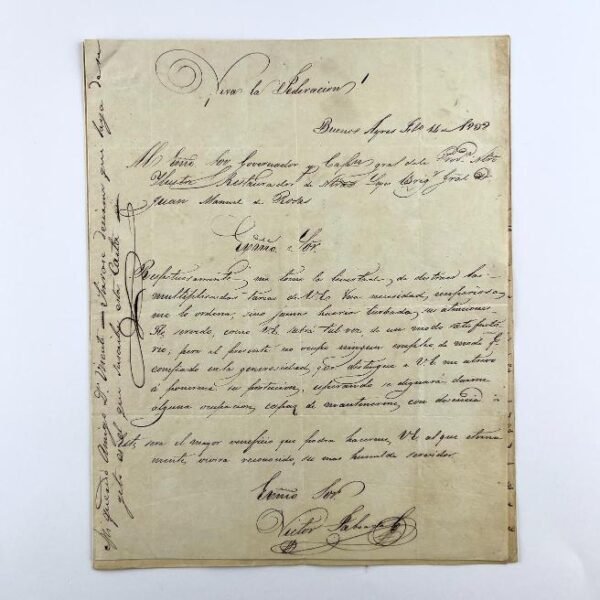 ¡Viva la Federacion!
Buenos Ayres Feb.o 14 de 1839
Al Exmo Sor Governador y Capn gral dela Prov.a Ntro
Ilustre Restaurador de Ntras Leyes Brigr Gral D
Juan Manuel de Rosas
Exmo Sor.
Respetuosamente me tomo la livertad de distraer las
multiplicadas tareas de V.E. Una necesidad, imperiosa,
me lo ordena; sino jamas huviera turbado, su atencion.
He servido, como V.E. sabrá tal vez de un modo satisfacto
rio; pero al presente no ocupo ningun empleo de modo q.
confiado en la generosidad, que distingue a V.E. me atrevo
á ponerme su proteccion, esperando se dignará darme
alguna ocupacion, capaz de mantenerme con decencia:
Este, sera el mayor veneficio que podra hacerme V.E. al que eterna
mente, vivira reconocido, su mas humilde servidor.
Exmo Sor.
Victor
Mi querido Amigo D. Vicente
el que suscribe esta Carta